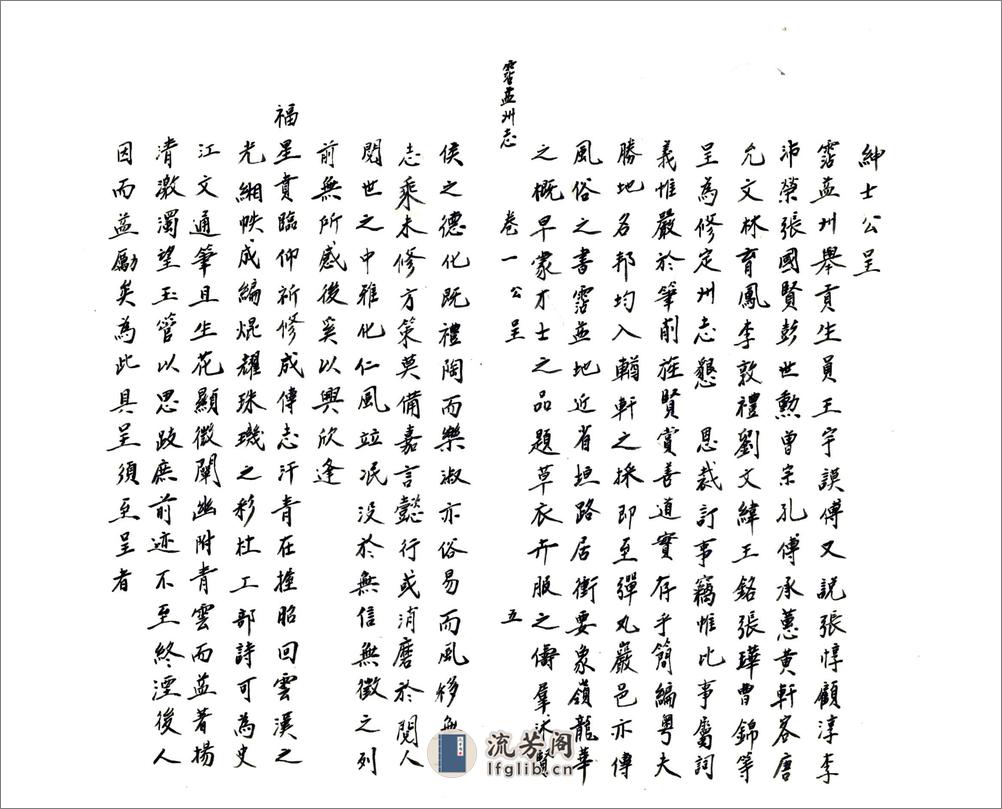 紳士公呈
霑益州舉貢生員王宇謨傅又説張惇顧淳李
沛榮張國賢彭世勲曾宗孔傅承蕙黄軒客唐
允文林育鳳李敦禮劉文緯王銘張瑋曹錦等
呈為修定州志懇　恩裁訂事竊惟比事屬詞
義惟嚴於筆削旌賢賞善道實存乎簡編粤夫
勝地名邦均入輶軒之採即至彈丸巖邑亦傳
風俗之書霑益地近省垣路居衝要象嶺龍華
之概早蒙才士之品題草衣卉服之儔羣沐賢
霑益州志　卷一　公呈　五
侯之德化既禮陶而樂淑亦俗易而風移
志乘未修方策莫備嘉言懿行或消磨於閱人
閱世之中雅化仁風竝泯没於無信無徵之列
前無所感後奚以興欣逢
福星賁臨仰祈修成傳志汗青在握昭回雲漢之
光緗帙成編焜耀珠璣之彩杜工部詩可為史
江文通筆且生花顯微闡幽附青雲而益著揚
清激濁望玉管以思跂庶前迹不至終湮後人
因而益勵矣為此具呈須至呈者
流芳阁
lfglib.cn